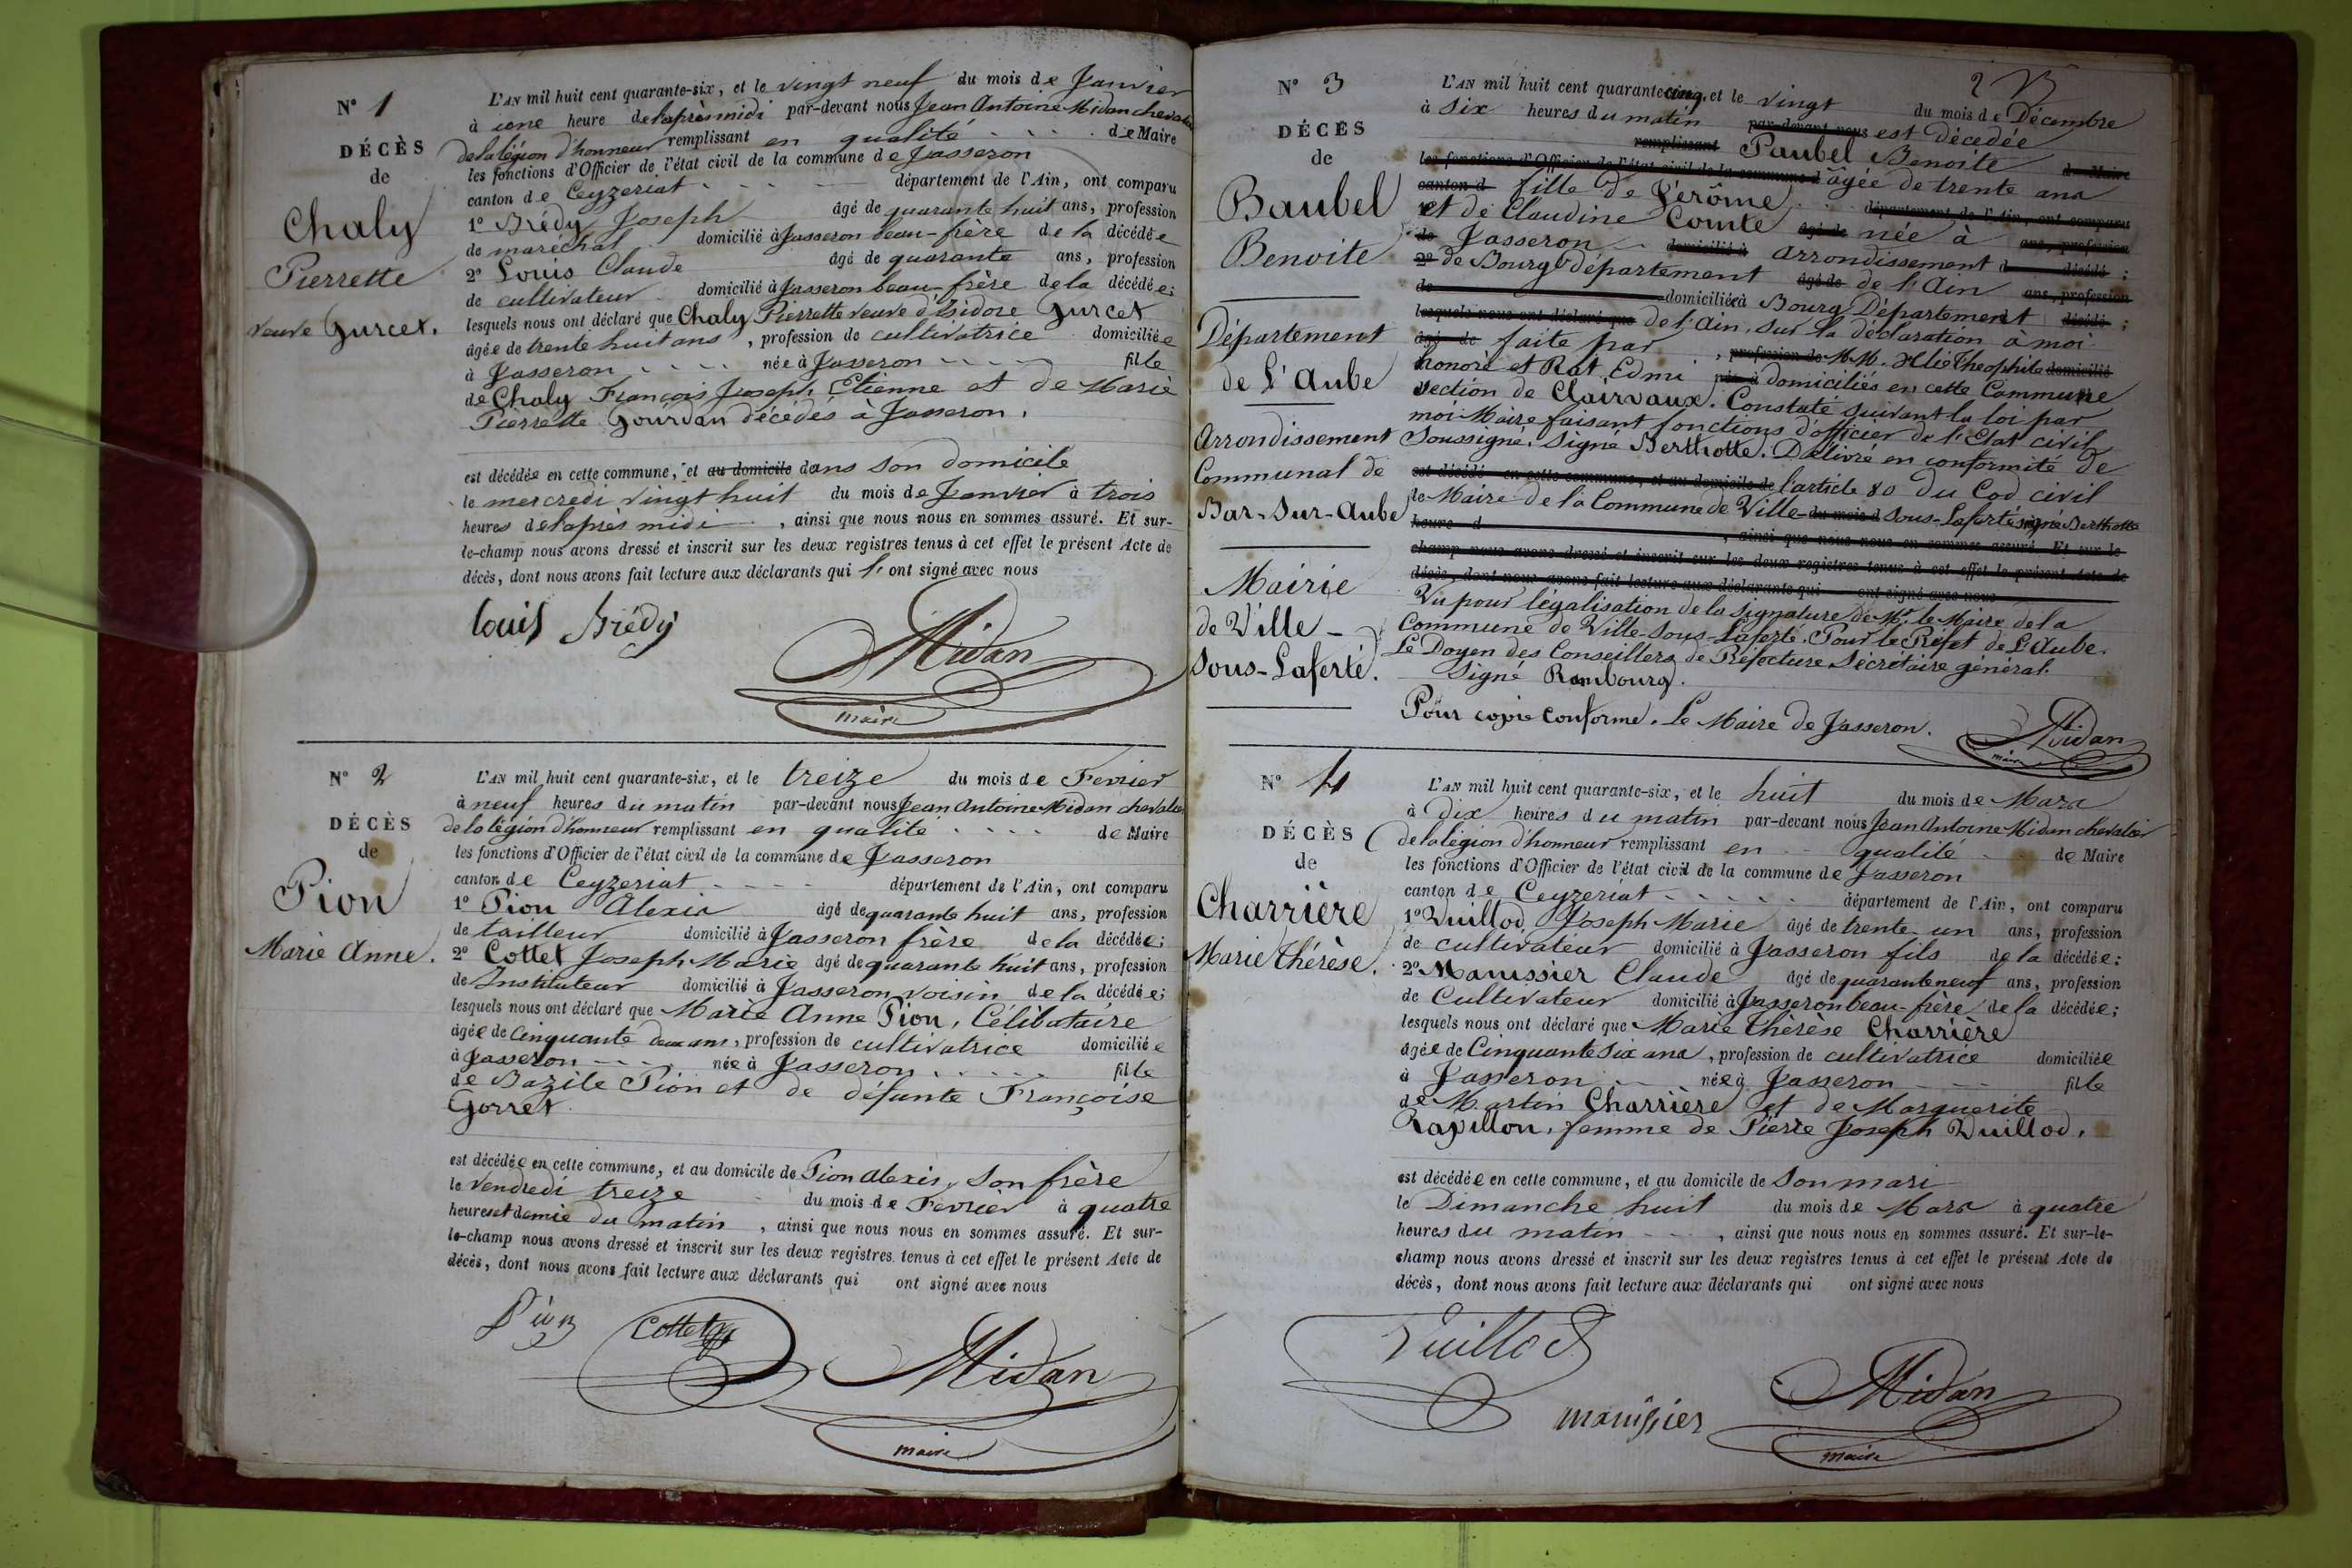 N° 1
DÉCÈS
de
Chaly
Pierrette
veuve Gurcet.
L'AN mil huit cent quarante-six, et le vingt neuf du mois de Janvier
à une heure de l'après midi par-devant nous Jean Antoine Midan chevalier
de la légion d'honneur remplissant en qualité de Maire
les fonctions d'Officier de l'état civil de la commune de Jasseron
canton de Ceyzeriat département de l'Ain, ont comparu
1° Brédy Joseph âgé de quarante huit ans, profession
de maréchal domicilié à Jasseron beau-frère de la décédée
2° Louis Claude âgé de quarante ans, profession
de cultivateur domicilié à Jasseron beau-frère de la décédée;
lesquels nous ont déclaré que Chaly Pierrette veuve d'Isidore Gurcet
âgée de trente huit ans, profession de cultivatrice domiciliée
à Jasseron née à Jasseron fille
de Chaly François Joseph Etienne et de Marie
Pierrette Gourdan décédés à Jasseron.
est décédée en cette commune, et au domicile dans son domicile
le mercredi vingt huit du mois de Janvier à trois
heures de l'après midi, ainsi que nous nous en sommes assuré. Et sur-
le-champ nous avons dressé et inscrit sur les deux registres tenus à cet effet le présent Acte de
décès, dont nous avons fait lecture aux déclarants qui l' ont signé avec nous
Louis Brédy Midan
maire
N° 2
DÉCÈS
de
Pion
Marie Anne.
L'AN mil huit cent quarante-six, et le treize du mois de Fevrier
à neuf heures du matin par-devant nous Jean Antoine Midan chevalier
de la légion d'honneur remplissant en qualité de Maire
les fonctions d'Officier de l'état civil de la commune de Jasseron
canton de Ceyzeriat département de l'Ain, ont comparu
1° Pion Alexis âgé de quarante huit ans, profession
de tailleur domicilié à Jasseron frère de la décédée;
2° Cottet Joseph Marie âgé de quarante huit ans, profession
de Instituteur domicilié à Jasseron voisin de la décédée;
lesquels nous ont déclaré que Marie Anne Pion, Célibataire
âgée de cinquante deux ans, profession de cultivatrice domiciliée
à Jasseron née à Jasseron fille
de Bazile Pion et de défunte Françoise
Gorret
est décédée en cette commune, et au domicile de Pion Alexis, son frère
le vendredi treize du mois de Fevrier à quatre
heures et demie du matin, ainsi que nous nous en sommes assuré. Et sur-
le-champ nous avons dressé et inscrit sur les deux registres tenus à cet effet le présent Acte de
décès, dont nous avons fait lecture aux déclarants qui ont signé avec nous
Pion Cottet Midan
maire
N° 3
DÉCÈS
de
Baubel
Benoite
Département
de L'Aube
Arrondissement
Communal de
Bar-Sur-Aube
Mairie
de Ville-
Sous-Laferté.
L'AN mil huit cent quarante cinq, et le vingt du mois de Décembre
à six heures du matin par-devant nous est décedée
remplissant Paubel Benoite de Maire
les fonctions d'Officier de l'état civil de la commune d âgée de trente ans
canton d fille de Jérôme département de l'Ain, ont comparu
et de Claudine Comte âgé de née à ans, profession
de Jasseron domicilié à arrondissement d décédé;
2° de Bourg département âgé de de l'Ain ans, profession
de domiciliée à Bourg Département décédé;
lesquels nous ont déclaré que de l'Ain, sur la déclaration à moi
âgé de faite par, profession de M.M. Hlie Théophile domicilié
honoré et Rat Edmi né à domiciliés en cette Commune
section de Clairvaux. Constaté suivant la loi par
moi Maire faisant fonctions d'officier de l'Etat civil
Soussigné. Signé Berthotte. Délivré en conformité de
est décédé en cette commune, et au domicile de l'article 80 du Cod civil
le Maire de la Commune de Ville du mois d sous-Laferté signé Berthotte
heure d, ainsi que nous nous en sommes assuré. Et sur-le-
champ nous avons dressé et inscrit sur les deux registres tenus à cet effet le présent Acte de
décès, dont nous avons fait lecture aux déclarants qui ont signé avec nous
Vu pour légalisation de la signature de Mr. le Maire de la
Commune de Ville-Sous-Laferté. Pour le Préfet de L'Aube.
Le Doyen des Conseillers de Préfecture Secrétaire général.
Signé Rambourg.
Pour copie conforme. Le Maire de Jasseron.
Midan
maire
N° 4
DÉCÈS
de
Charrière
Marie Thérèse.
L'AN mil huit cent quarante-six, et le huit du mois de Mars
à dix heures du matin par-devant nous Jean Antoine Midan chevalier
de la légion d'honneur remplissant en qualité de Maire
les fonctions d'Officier de l'état civil de la commune de Jasseron
canton de Ceyzeriat département de l'Ain, ont comparu
1° Vuillod Joseph Marie âgé de trente un ans, profession
de cultivateur domicilié à Jasseron fils de la décédée:
2° Manissier Claude âgé de quarante neuf ans, profession
de Cultivateur domicilié à Jasseron beau-frère de la décédée;
lesquels nous ont déclaré que Marie Thérèse Charrière
âgée de Cinquante six ans, profession de cultivatrice domiciliée
à Jasseron née à Jasseron fille
de Martin Charrière et de Marguerite
Rapillon, femme de Pierre Joseph Vuillod.
est décédée en cette commune, et au domicile de Son mari
le Dimanche huit du mois de Mars à quatre
heures du matin, ainsi que nous nous en sommes assuré. Et sur-le-
champ nous avons dressé et inscrit sur les deux registres tenus à cet effet le présent Acte de
décès, dont nous avons fait lecture aux déclarants qui ont signé avec nous
Vuillod
manissier Midan
maire